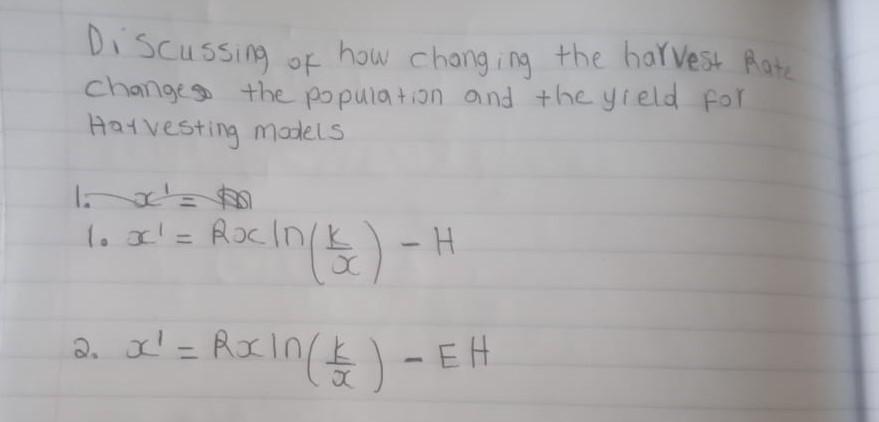 Discussing of how changing the harvest Rate
changes the population and the yield for
Harvesting models
1. x' =
1. x' = Rx ln(K/x) - H
2. x' = Rx ln(K/x) - EH